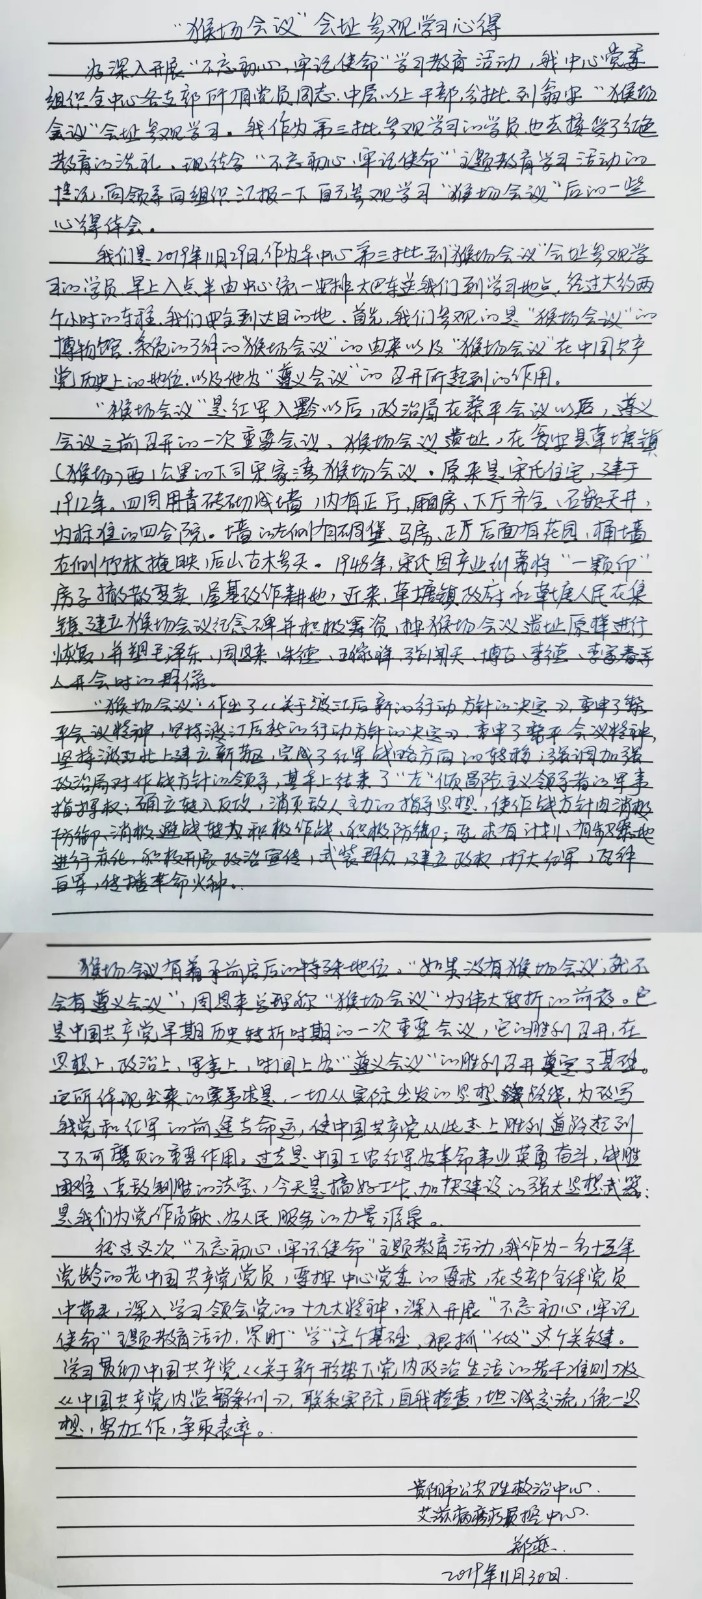 “猴场会议”会址参观学习心得
为深入开展“不忘初心,牢记使命”学习教育活动,我中心党委
组织全中心各支部所有党员同志、中层以上干部分批到瓮安“猴场
会议”会址参观学习。我作为第三批参观学习的学员也去接受了红色
教育的洗礼、现结合“不忘初心、牢记使命”主题教育学习活动的
情况,向领导向组织汇报一下自己参观学习“猴场会议”后的一些
心得体会。
我们是2019年11月29日,作为本中心第三批到“猴场会议”会址参观学
习的学员,早上八点半由中心统一安排大巴车送我们到学习地点,经过大约两
个小时的车程,我们安全到达目的地、首先,我们参观的是“猴场会议”的
博物馆、系统的了解的“猴场会议”的由来以及“猴场会议”在中国共产
党历史上的地位,以及他为“遵义会议”的召开所起到的作用。
“猴场会议”是红军入黔以后,政治局在黎平会议以后,遵义
会议之前召开的一次重要会议、猴场会议遗址,在瓮安县草塘镇
(猴场)西1公里的下司宋家湾猴场会议。原来是宋氏住宅,建于
1912年。四周用青砖砌成墙,内有正厅、厢房、下厅齐全、石嵌天井,
为标准的四合院。墙的左侧有碉堡、马房、正厅后面有花园,桶墙
右侧竹林掩映,后山古木参天。1948年,宋氏因产业纠葛将“一颗印”
房子撤散变卖,屋基改作耕地,近来,草塘镇政府和草塘人民在集
镇建立猴场会议纪念碑并积极筹资,按猴场会议遗址原样进行
恢复,并塑毛泽东、周恩来、朱德、王稼祥、张闻天、博古、李德、李富春等
人开会时的群像。
“猴场会议”作出了《关于渡江后新的行动方针的决定》,重申了黎
平会议精神,坚持渡江后新的行动方针的决定》,重申了黎平会议精神,
坚持渡江北上建立新苏区,完成了红军战略方向的转移;强调加强
政治局对作战方针的领导,基本上结束了“左”倾冒险主义领导者的军事
指挥权;确立转入反攻,消灭敌人主力的指导思想,使作战方针由消极
防御、消极避战转为积极作战、积极防御;要求有计划、有步骤地
进行赤化,积极开展政治宣传,武装群众,建立政权,扩大红军,瓦解
白军,传播革命火种。
猴场会议有着承前启后的特殊地位。“如果没有猴场会议,就不
会有遵义会议”,周恩来总理称“猴场会议”为伟大转折的前夜。它
是中国共产党早期历史转折时期的一次重要会议,它的胜利召开,在
思想上,政治上,军事上,时间上为“遵义会议”的胜利召开奠定了基础。
它所体现出来的实事求是,一切从实际出发的思想路线,为改写
我党和红军的前途与命运,使中国共产党从此走上胜利道路起到
了不可磨灭的重要作用。过去是中国工农红军为革命事业英勇奋斗,战胜
困难、克敌制胜的法宝,今天是搞好工作,加快建设的强大思想武器;
是我们为党作贡献、为人民服务的力量源泉。
经过这次“不忘初心,牢记使命”主题教育活动,我作为一名十五年
党龄的老中国共产党党员,要按中心党委的要求,在支部全体党员
中带头,深入学习领会党的十九大精神,深入开展“不忘初心,牢记
使命”主题教育活动,紧盯“学”这个基础,狠抓“做”这个关键。
学习贯彻中国共产党《关于新形势下党内政治生活的若干准则》及
《中国共产党内监督条例》,联系实际,自我检查,坦诚交流,统一思
想,努力工作,争取表率。
贵阳市公共卫生救治中心.
艾滋病中心.
郑燕.
2019年11月30日.